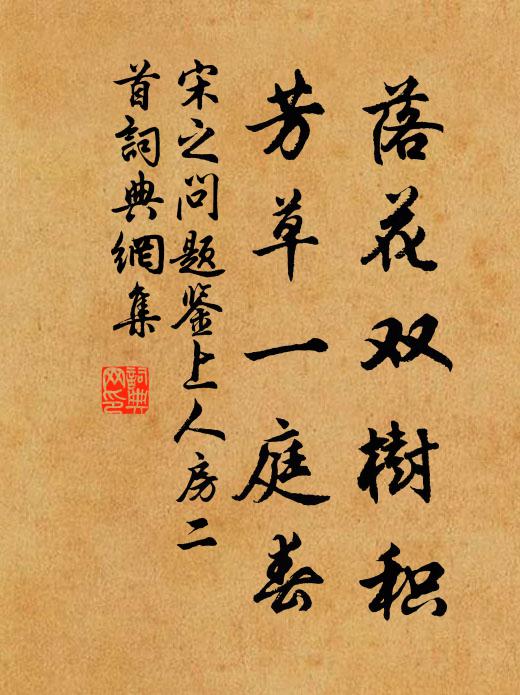 落花双樹积
芳草一庭春
宋之问题鉴上人房二
首詞典網集
詞典网印